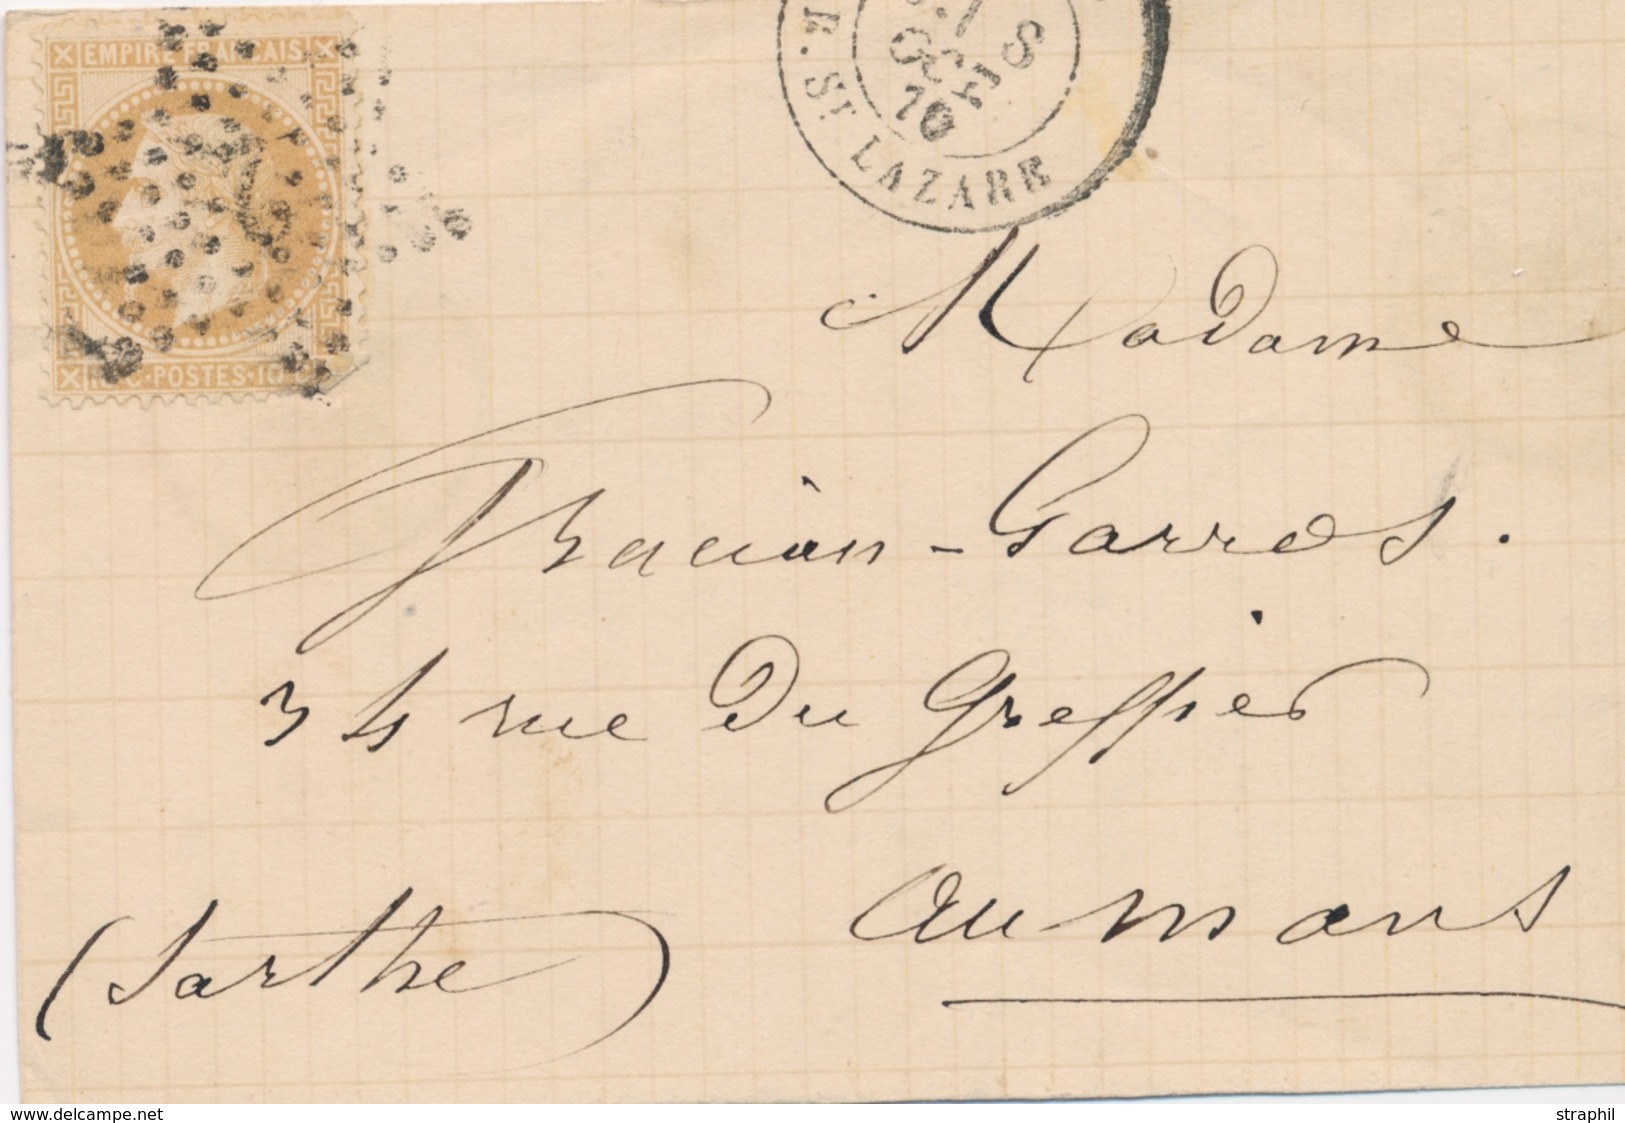 EMPIRE FRANÇAIS
10 C · POSTES · 10 C
8
OCT
70
R. ST LAZARE
Madame
- Garros.
34 rue du Greffier
au mans
(Sarthe)
www.delcampe.net
straphil